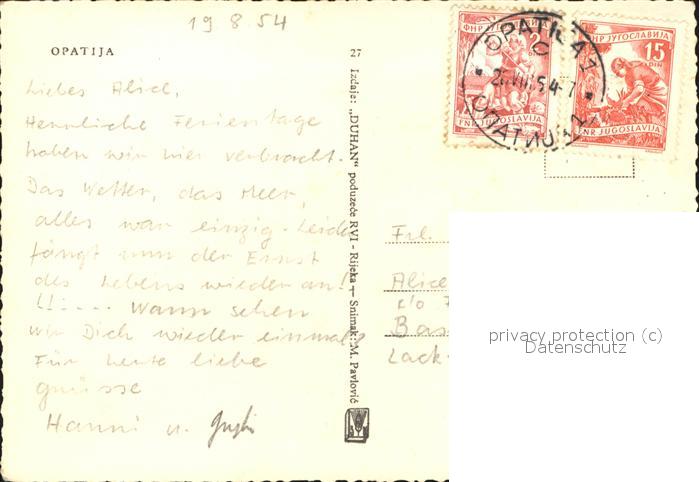 19 8 54
OPATIJA
27
Liebes Alice,
Herrliche Ferientage
haben wir hier verbracht.
Das Wetter, das Meer,
alles war einzig. Leider
fängt nun der Ernst
des Lebens wieder an!
Wann sehen
wir Dich wieder einmal?
Für heute liebe
grüsse
Hanni u.
Izdaje: „DUHAN“ poduzeće RVI - Rijeka — Snimak: M. Pavlović
ФНР ЈУГОСЛАВИЈА
2
FNR JUGOSLAVIJA
ФНР ЈУГОСЛАВИЈА
15
DIN
FNR JUGOSLAVIJA
OPATIJA 1
54-7
ОПАТИЈА 1
Frl.
Alice
c/o
Bas
Lack
privacy protection (c)
Datenschutz